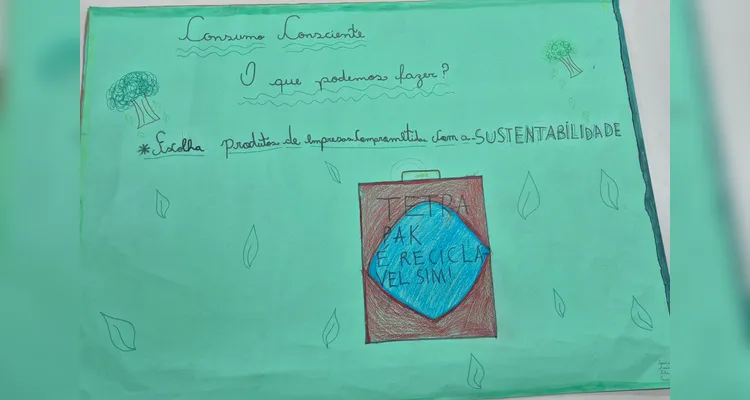 Consumo Consciente
O que podemos fazer?
*Escolha Produtos de Empresas Comprometidas com a SUSTENTABILIDADE
TETRA
PAK
E RECICLA-
VEL SIM!